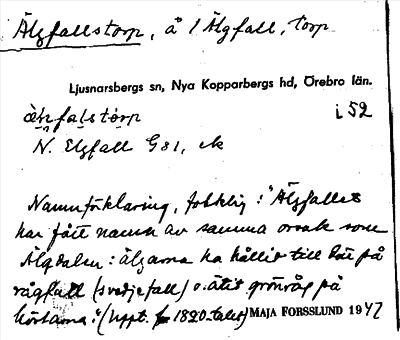 Älgfallstorp, å 1 Älgfall, torp
Ljusnarsbergs sn, Nya Kopparbergs hd, Örebro län.
i 52
N. Elgfall G 81, ek
Namnförklaring, folklig: "Älgfallet
har fått namn av samma orsak som
Älgdalen: älgarna ha hållit till där på
rågfall (svedjefall) o. ätit grönråg på
höstarna." (Uppt. fr 1820-talet) MAJA FORSSLUND 1947